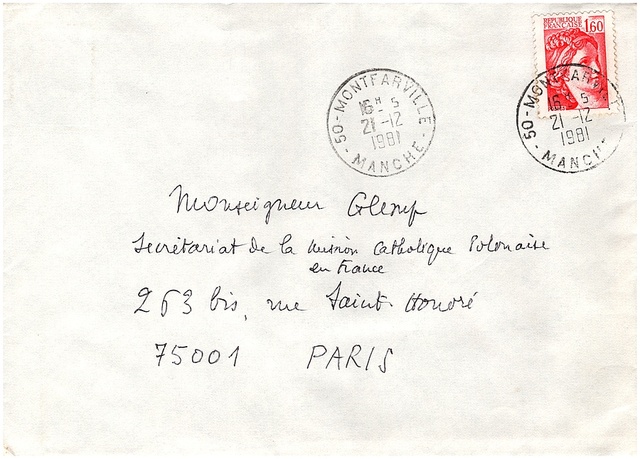 REPUBLIQUE FRANCAISE 1,60
50 - MONTFARVILLE - MANCHE -
16H 5
21-12
1981
50 - MONTFARVILLE - MANCHE -
16H 5
21-12
1981
Monseigneur Glemp
Secrétariat de la Mission Catholique Polonaise
en France
263 bis, rue Saint-Honoré
75001 PARIS